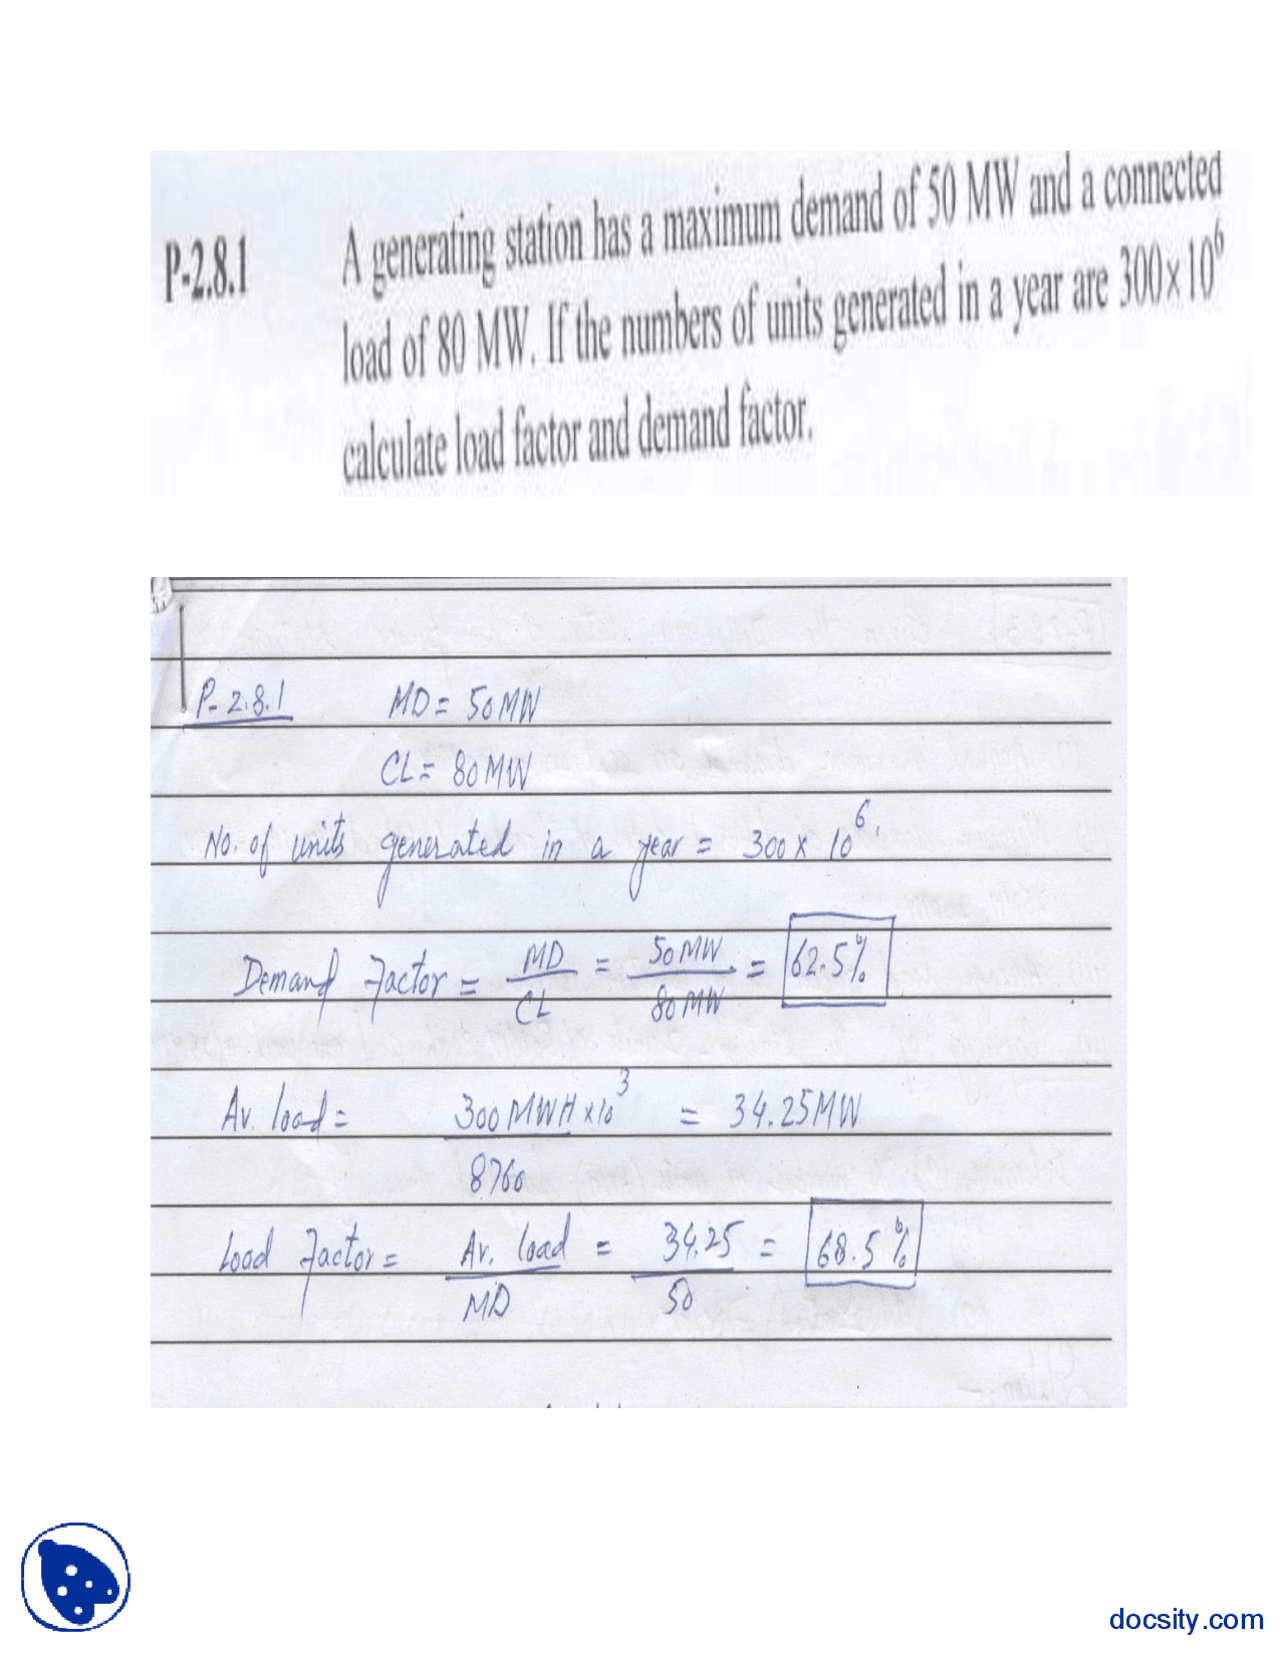 P-2.8.1 A generating station has a maximum demand of 50 MW and a connected
load of 80 MW. If the numbers of units generated in a year are 300×10⁶
calculate load factor and demand factor.
P-2.8.1 MD = 50 MW
CL = 80 MW
No. of units generated in a year = 300 × 10⁶.
Demand Factor = MD / CL = 50 MW / 80 MW = 62.5%
Av. load = 300 MWH × 10³ / 8760 = 34.25 MW
Load Factor = Av. load / MD = 34.25 / 50 = 68.5%
docsity.com